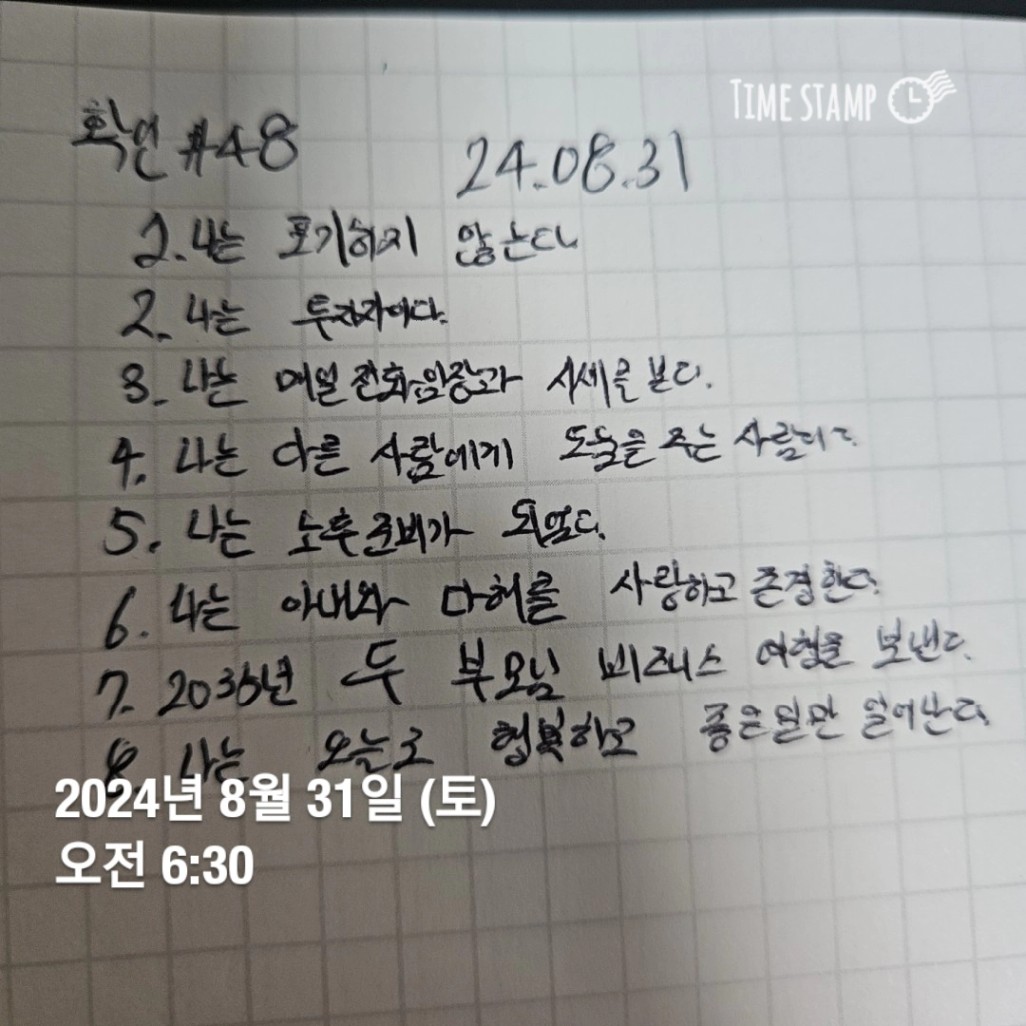 TIME STAMP
확언 #48 24.08.31
1. 나는 포기하지 않는다
2. 나는 투자자이다.
3. 나는 매일 전화임장과 시세를 본다.
4. 나는 다른 사람에게 도움을 주는 사람이다.
5. 나는 노후준비가 되었다.
6. 나는 아내와 다혜를 사랑하고 존경한다.
7. 2036년 두 부모님 비즈니스 여행을 보낸다.
8. 나는 오늘도 행복하고 좋은일만 일어난다.
2024년 8월 31일 (토)
오전 6:30